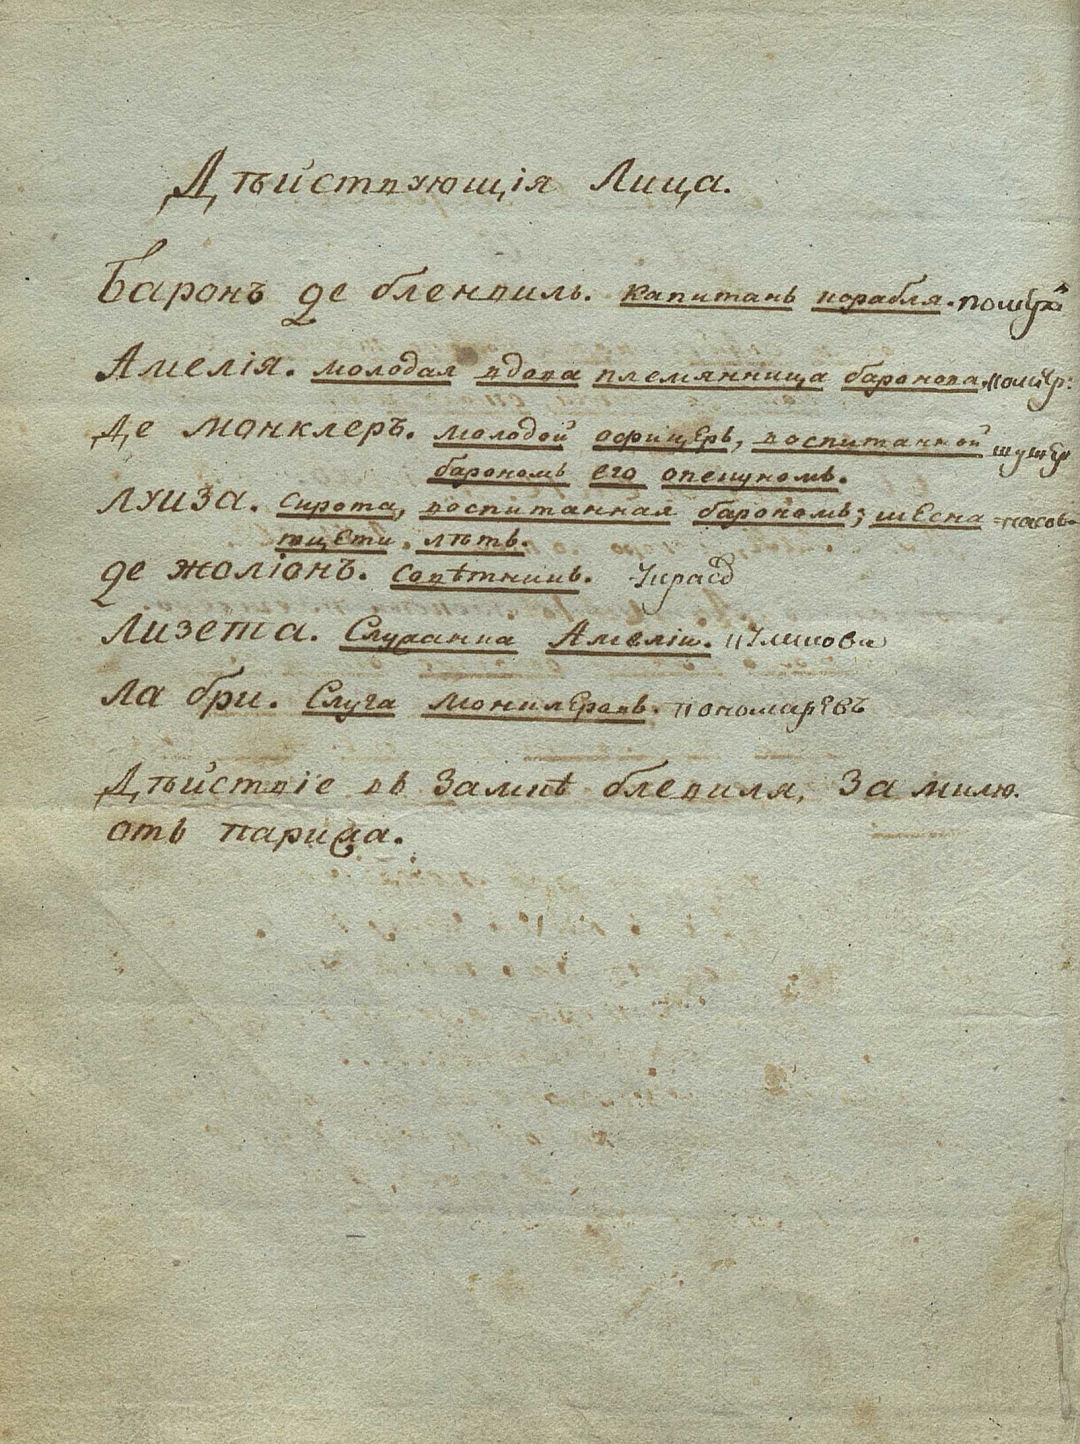 Дѣйствующія Лица.
Баронъ де бленвиль. капитанъ корабля.
Амелія. молодая вдова племянница баронова.
Де Монклеръ. молодой офицеръ, воспитанной
барономъ его опекуномъ.
Луиза. сирота, воспитанная барономъ; шесна=
тцети лѣтъ.
де жолионъ. совѣтникъ.
Лизета. Служанка Амеліи.
Ла бри. Слуга монклеровъ. пономаревъ
Дѣйствіе въ Замкѣ блевиля, За милю
отъ парижа.